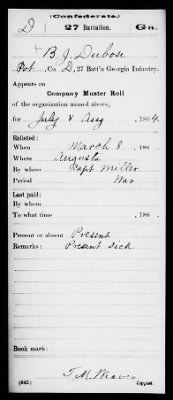 (Confederate)
D 27 Battalion. Ga.
B. J. Dubose
Pvt, Co. D, 27 Batt'n Georgia Infantry.
Appears on
Company Muster Roll
of the organization named above,
for July & Aug, 1864.
Enlisted:
When March 8, 186 .
Where Augusta
By whom Capt Miller
Period War
Last paid:
By whom
To what time , 186 .
Present or absent Present
Remarks: Present sick
Book mark:
(642) Copyist.